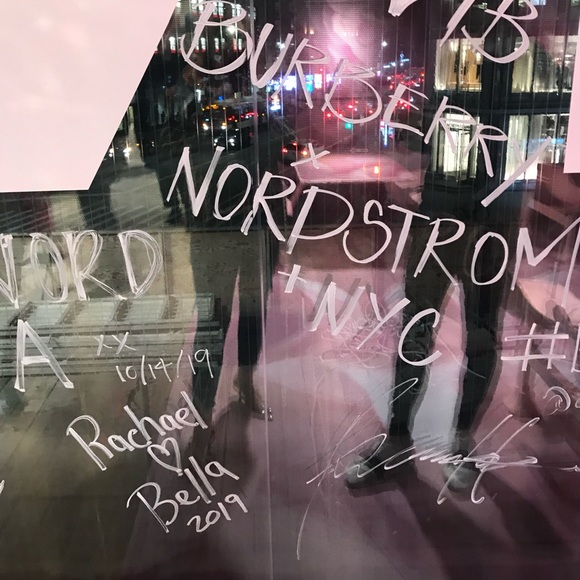 TB
BURBERRY
x
NORDSTROM
+ NYC
NORD
A
xx
10/14/19
Rachael
♡
Bella
2019
#